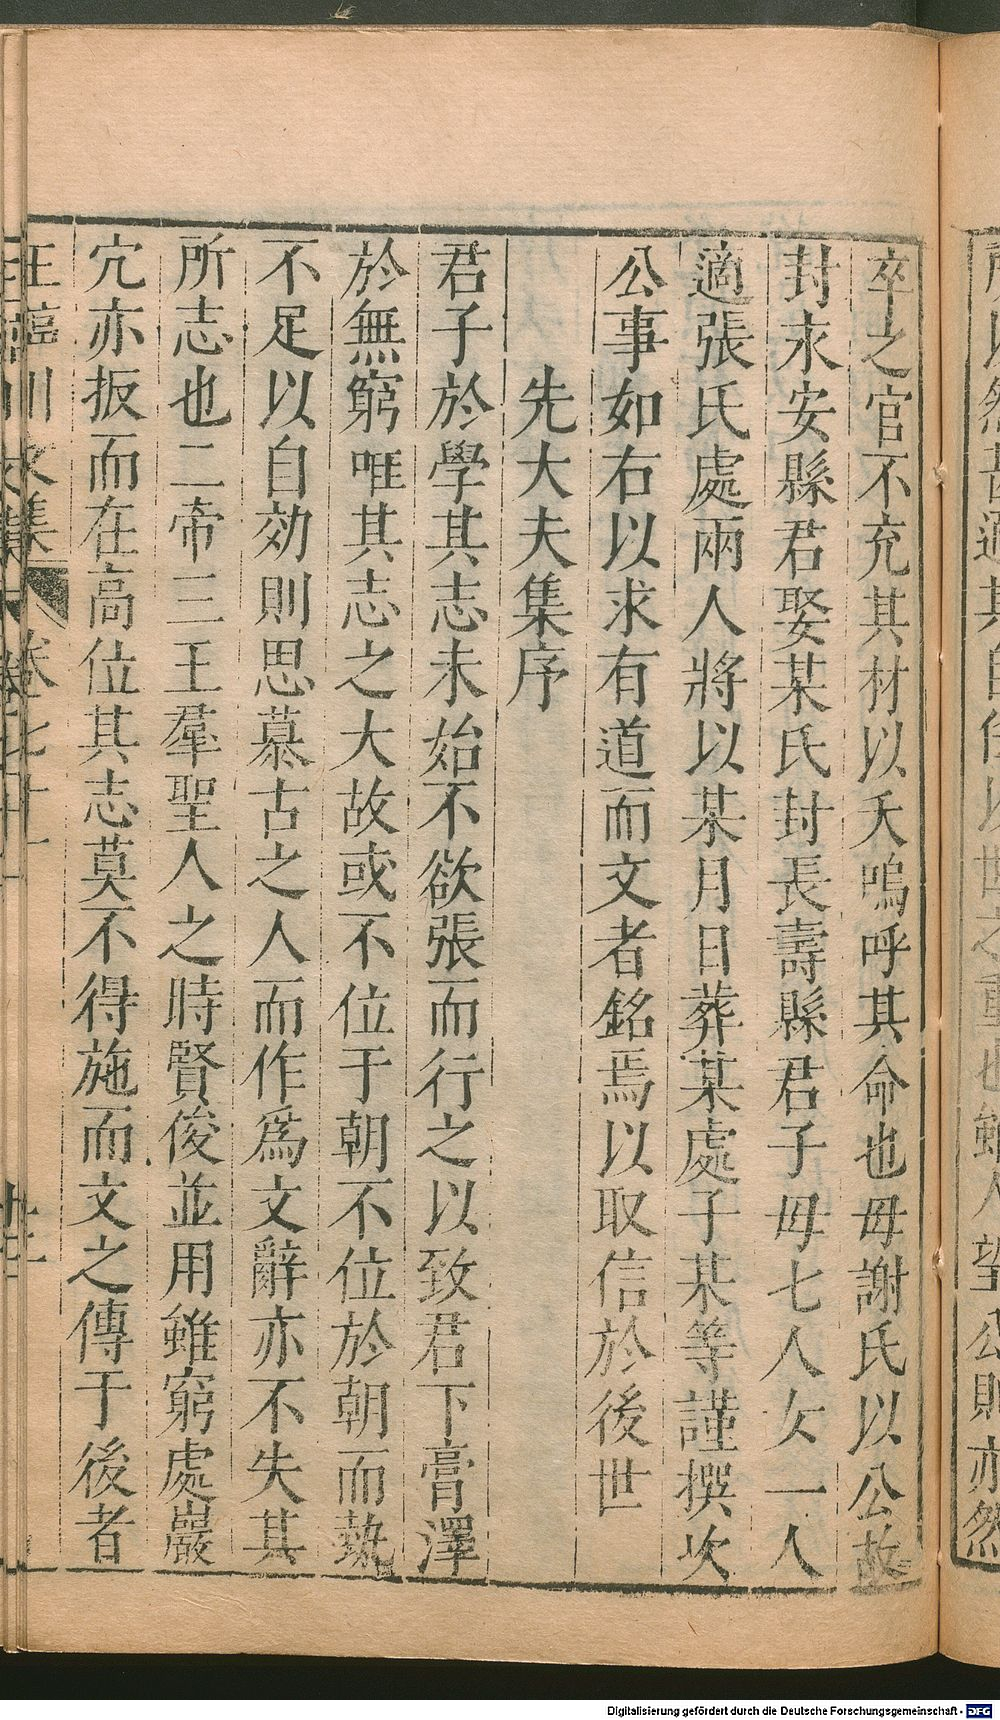 卒之官不充其材以夭嗚呼其命也母謝氏以公故
封永安縣君娶某氏封長壽縣君子母七人女一人
適張氏處兩人將以某月日葬某處子某等謹撰次
公事如右以求有道而文者銘焉以取信於後世
先大夫集序
君子於學其志未始不欲張而行之以致君下膏澤
於無窮唯其志之大故或不位于朝不位於朝而勢
不足以自効則思慕古之人而作爲文辭亦不失其
所志也二帝三王羣聖人之時賢俊並用雖窮處巖
穴亦扳而在高位其志莫不得施而文之傳于後者
王臨川文集 卷七十一
Digitalisierung gefördert durch die Deutsche Forschungsgemeinschaft - DFG